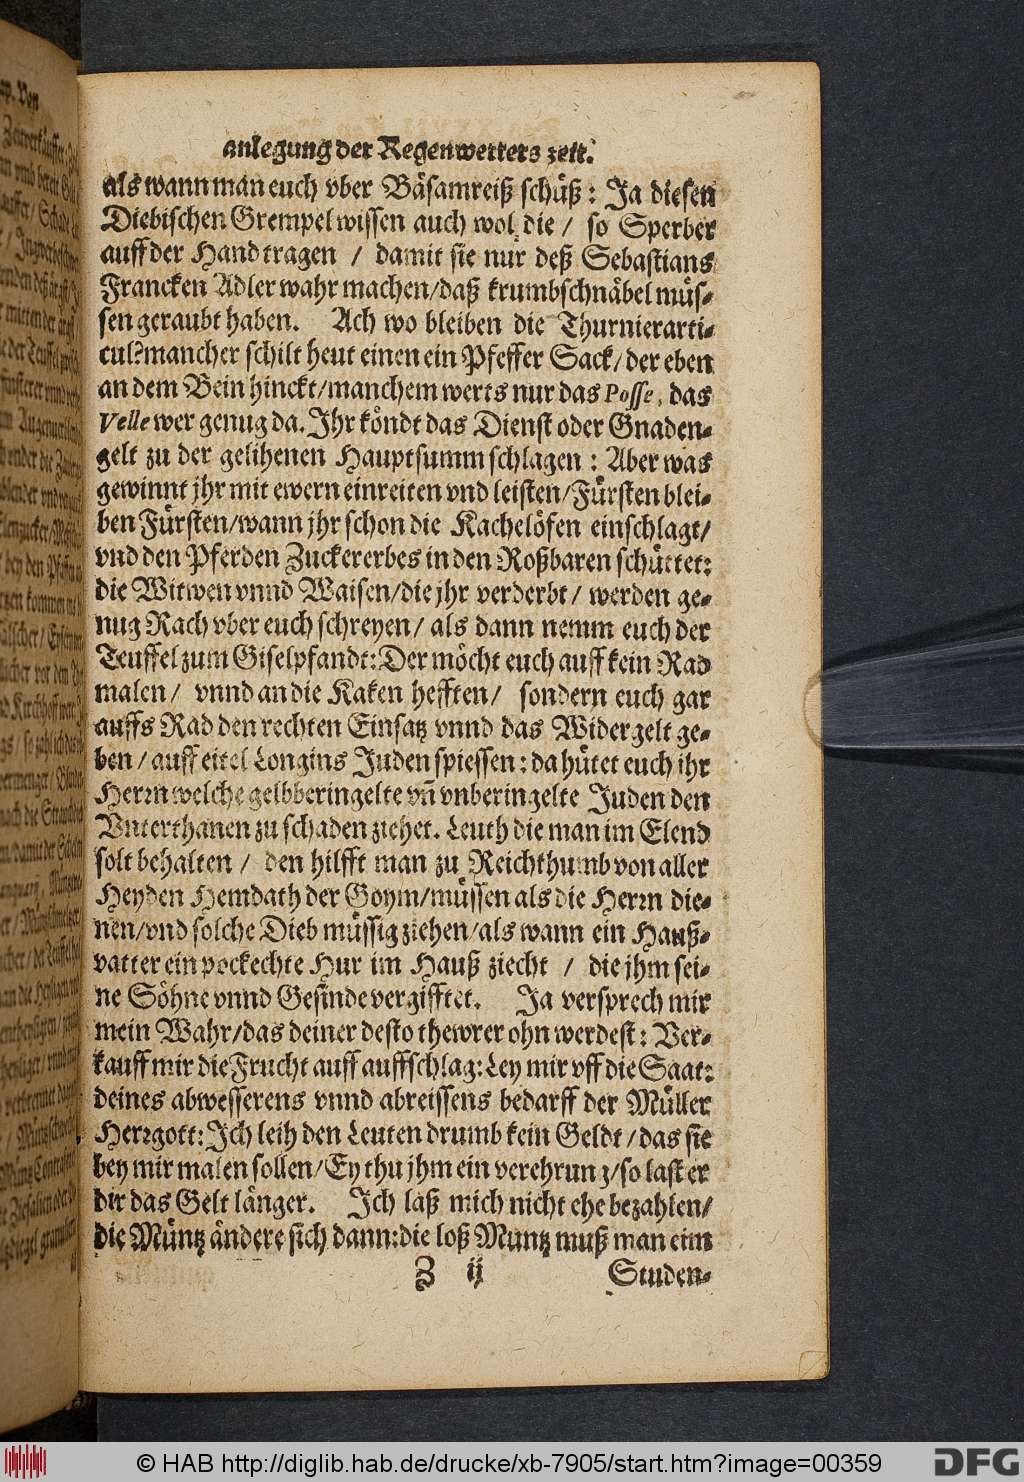 anlegung der Regenwetters zeit.
als wann man euch vber Bäsamreiß schüß: Ja diesen
Diebischen Grempel wissen auch wol die / so Sperber
auff der Hand tragen / damit sie nur deß Sebastians
Francken Adler wahr machen/daß krumbschnäbel müs-
sen geraubt haben. Ach wo bleiben die Thurnierarti-
cul? mancher schilt heut einen ein Pfeffer Sack/ der eben
an dem Bein hinckt/manchem werts nur das Posse, das
Velle wer genug da. Ihr köndt das Dienst oder Gnaden-
gelt zu der gelihenen Hauptsumm schlagen: Aber was
gewinnt jhr mit ewern einreiten vnd leisten/Fürsten blei-
ben Fürsten/wann jhr schon die Kachelöfen einschlagt/
vnd den Pferden Zuckererbes in den Roßbaren schüttet:
die Witwen vnnd Waisen/die jhr verderbt/ werden ge-
nug Rach vber euch schreyen/ als dann nemm euch der
Teuffel zum Giselpfandt: Der möcht euch auff kein Rad
malen/ vnnd an die Kaken hefften/ sondern euch gar
auffs Rad den rechten Einsatz vnnd das Widergelt ge-
ben/ auff eitel Longins Juden spiessen: da hütet euch ihr
Herrn welche gelbberingelte vñ vnberingelte Juden den
Vnterthanen zu schaden ziehet. Leuth die man im Elend
solt behalten / den hilfft man zu Reichthumb von aller
Heyden Hemdath der Goym/müssen als die Herrn die-
nen/vnd solche Dieb müssig ziehen/als wann ein Hauß-
vatter ein pockechte Hur im Hauß ziecht / die jhm sei-
ne Söhne vnnd Gesinde vergifftet. Ja versprech mir
mein Wahr/das deiner desto thewrer ohn werdest: Ver-
kauff mir die Frucht auff auffschlag: Ley mir vff die Saat:
deines abwesserens vnnd abreissens bedarff der Müller
Herrgott: Ich leih den Leuten drumb kein Geldt/das sie
bey mir malen sollen/Ey thu jhm ein verehrung/so last er
dir das Gelt länger. Ich laß mich nicht ehe bezahlen/
die Müntz ändere sich dann: die loß Muntz muß man eim
Z ij Studen-
© HAB http://diglib.hab.de/drucke/xb-7905/start.htm?image=00359
DFG